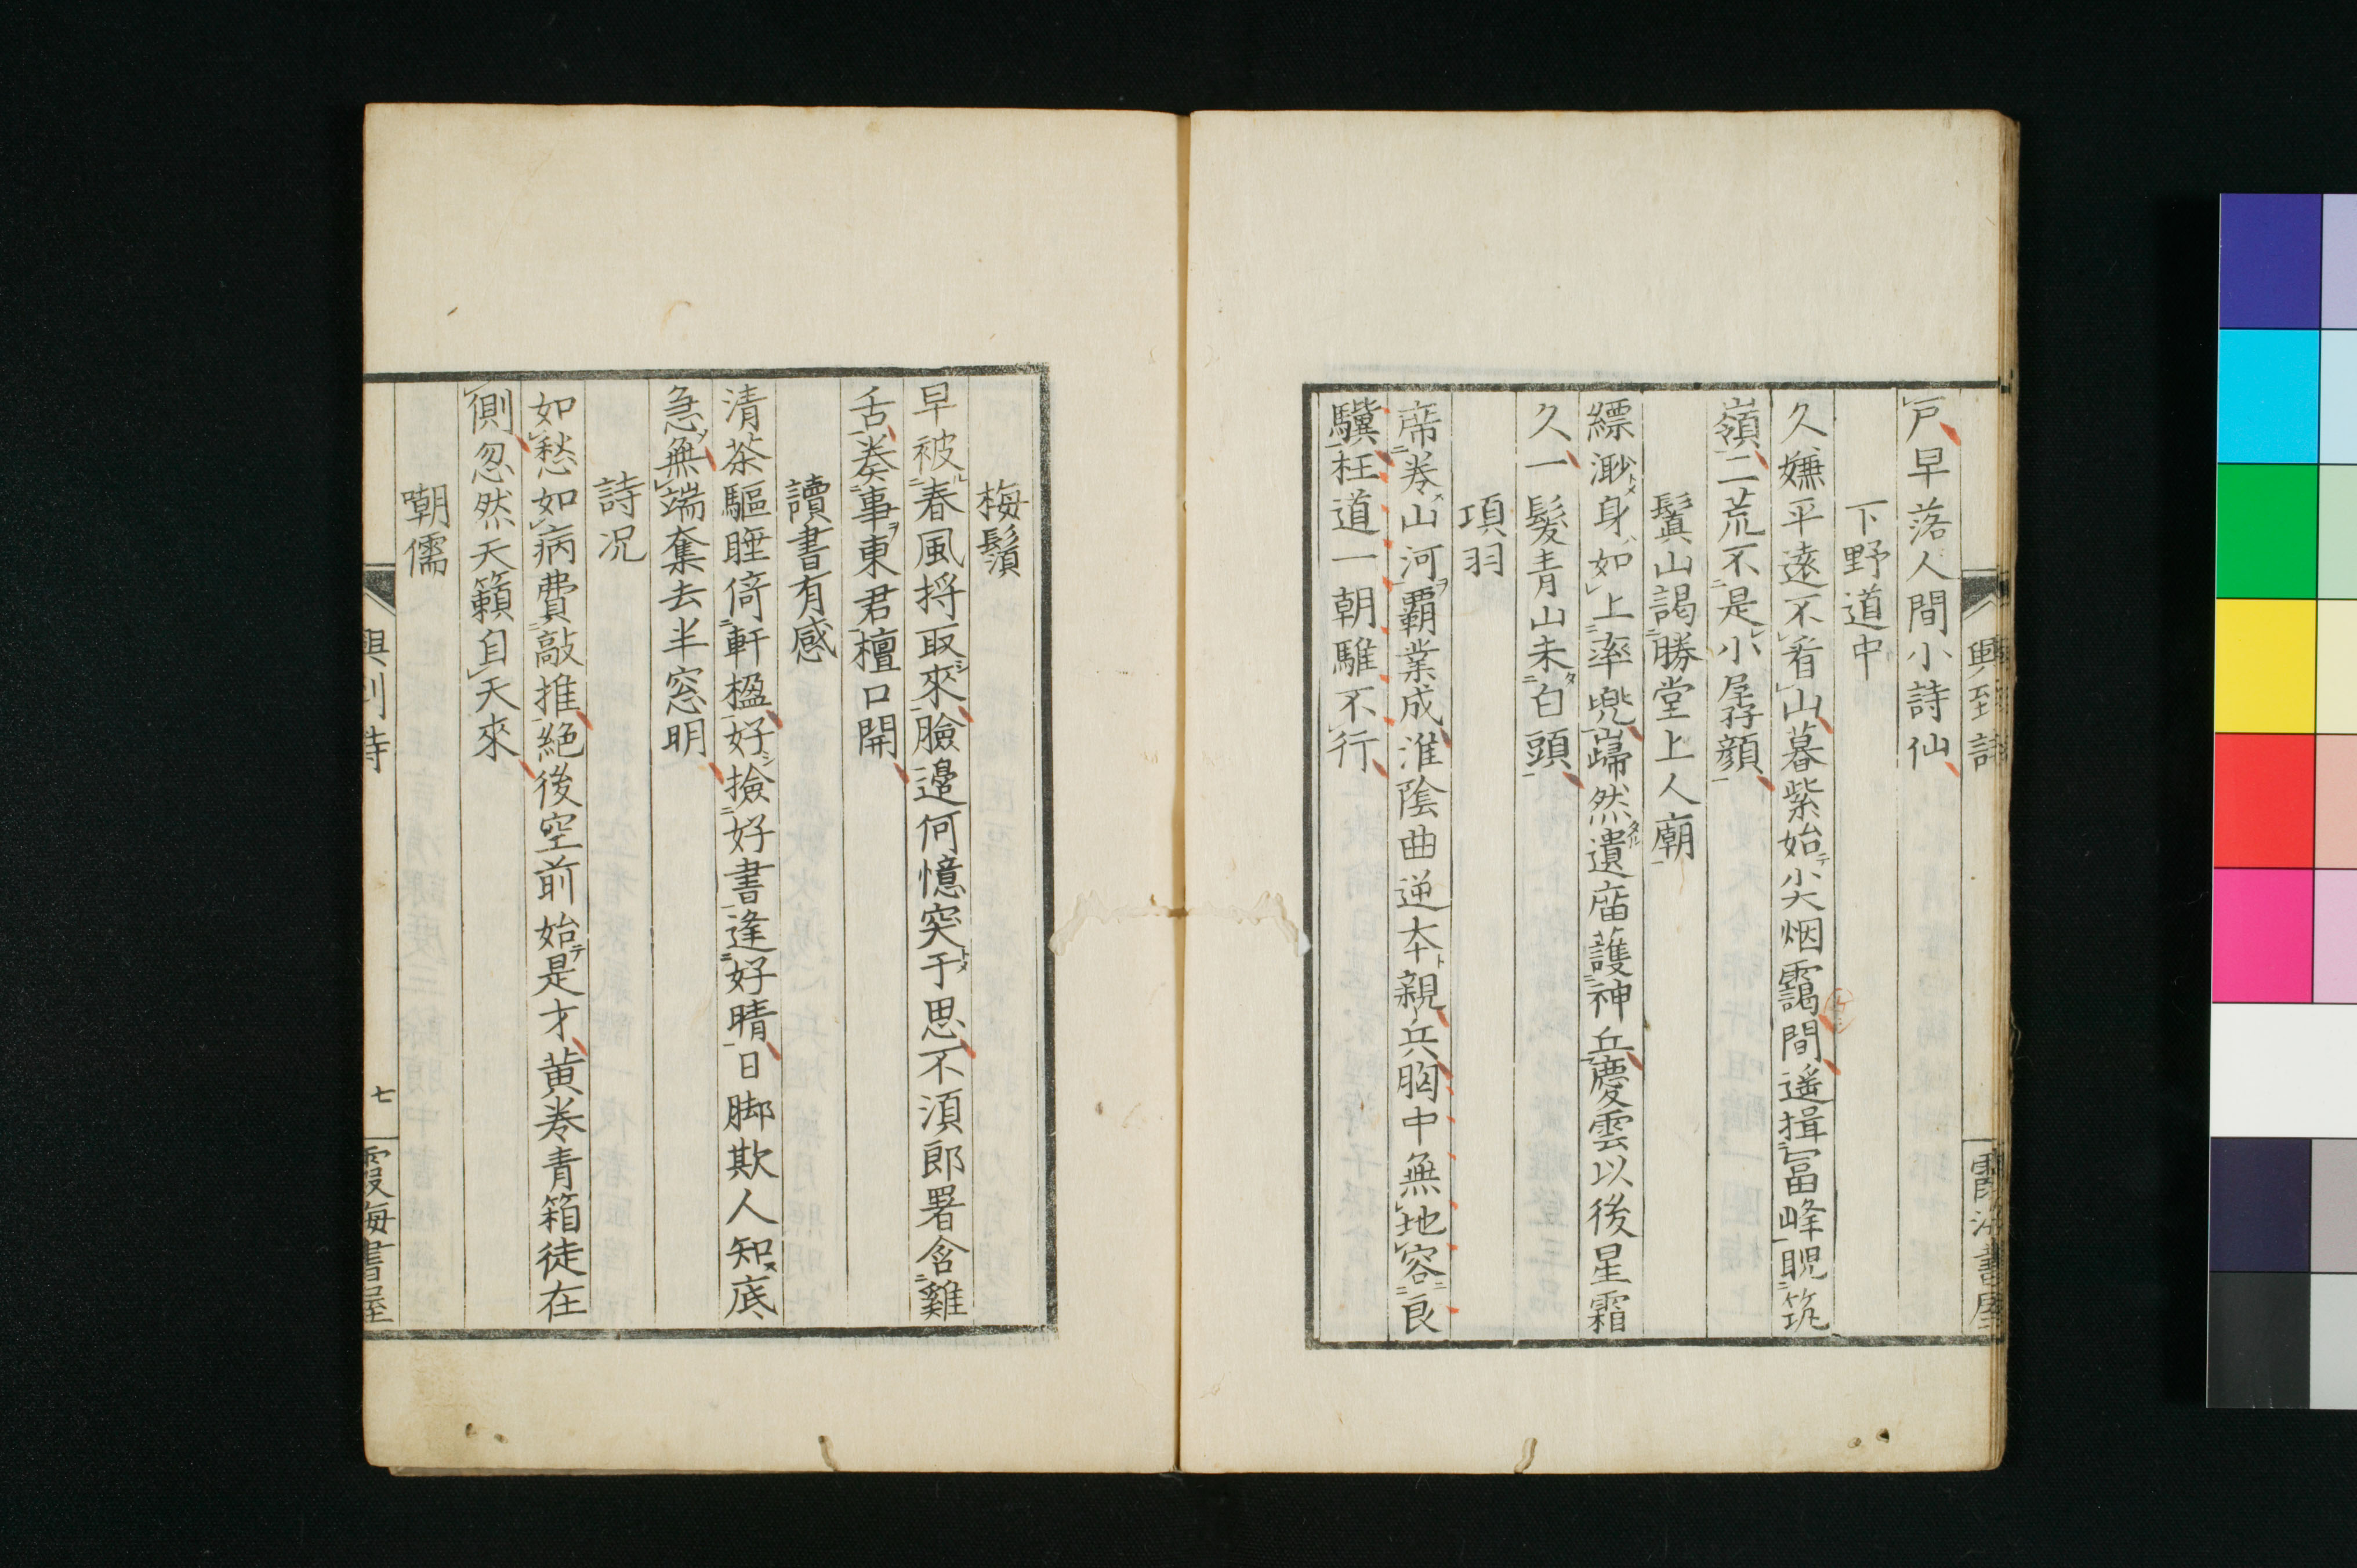 戸早落人間小詩仙
下野道中
久嫌平遠不看山暮紫始尖烟靄間遥揖富峰睨筑
嶺二荒不是小孱顔
鬒山謁勝堂上人廟
縹渺身如上率兜巋然遺庿護神丘慶雲以後星霜
久一髮青山未白頭
項羽
席卷山河覇業成淮陰曲逆本親兵胸中無地容良
驥枉道一朝騅不行
梅鬚
早被春風捋取來臉邊何憶突于思不須郎署含雞
舌奏事東君檀口開
讀書有感
清茶驅睡倚軒楹好撿好書逢好晴日脚欺人知底
急無端奪去半窓明
詩况
如愁如病費敲推絶後空前始是才黄卷青箱徒在
側忽然天籟自天來
嘲儒
七
霞海書屋